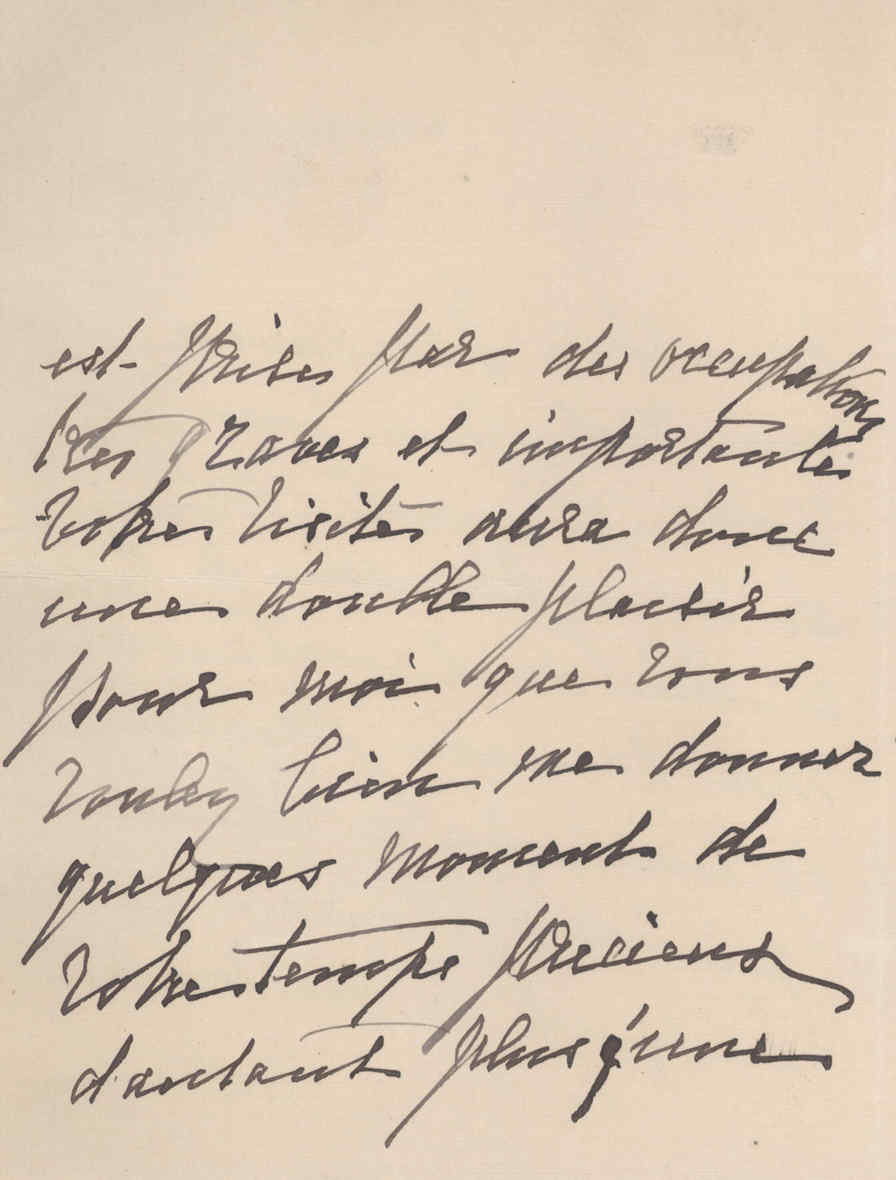 est prise par des occupations
tres graves et importantes
votre visite aura donc
une double plaisir
pour moi que vous
voulez bien me donner
quelques moment de
votre temps precieux
dautant plus q'une